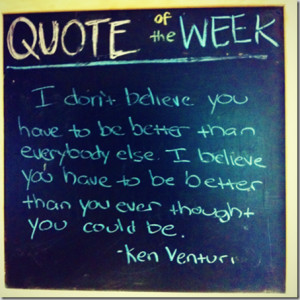 QUOTE of the WEEK
I don't believe you
have to be better than
everybody else. I believe
you have to be better
than you ever thought
you could be.
-Ken Venturi